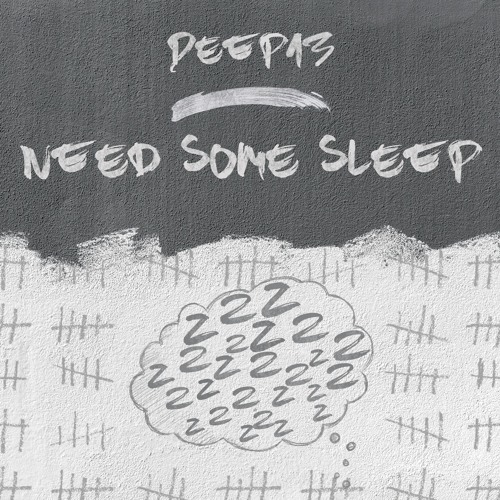 DEEP13
NEED SOME SLEEP
Z Z Z
Z Z Z Z
Z Z Z Z Z
Z Z Z Z
Z Z Z Z Z
Z Z Z Z Z